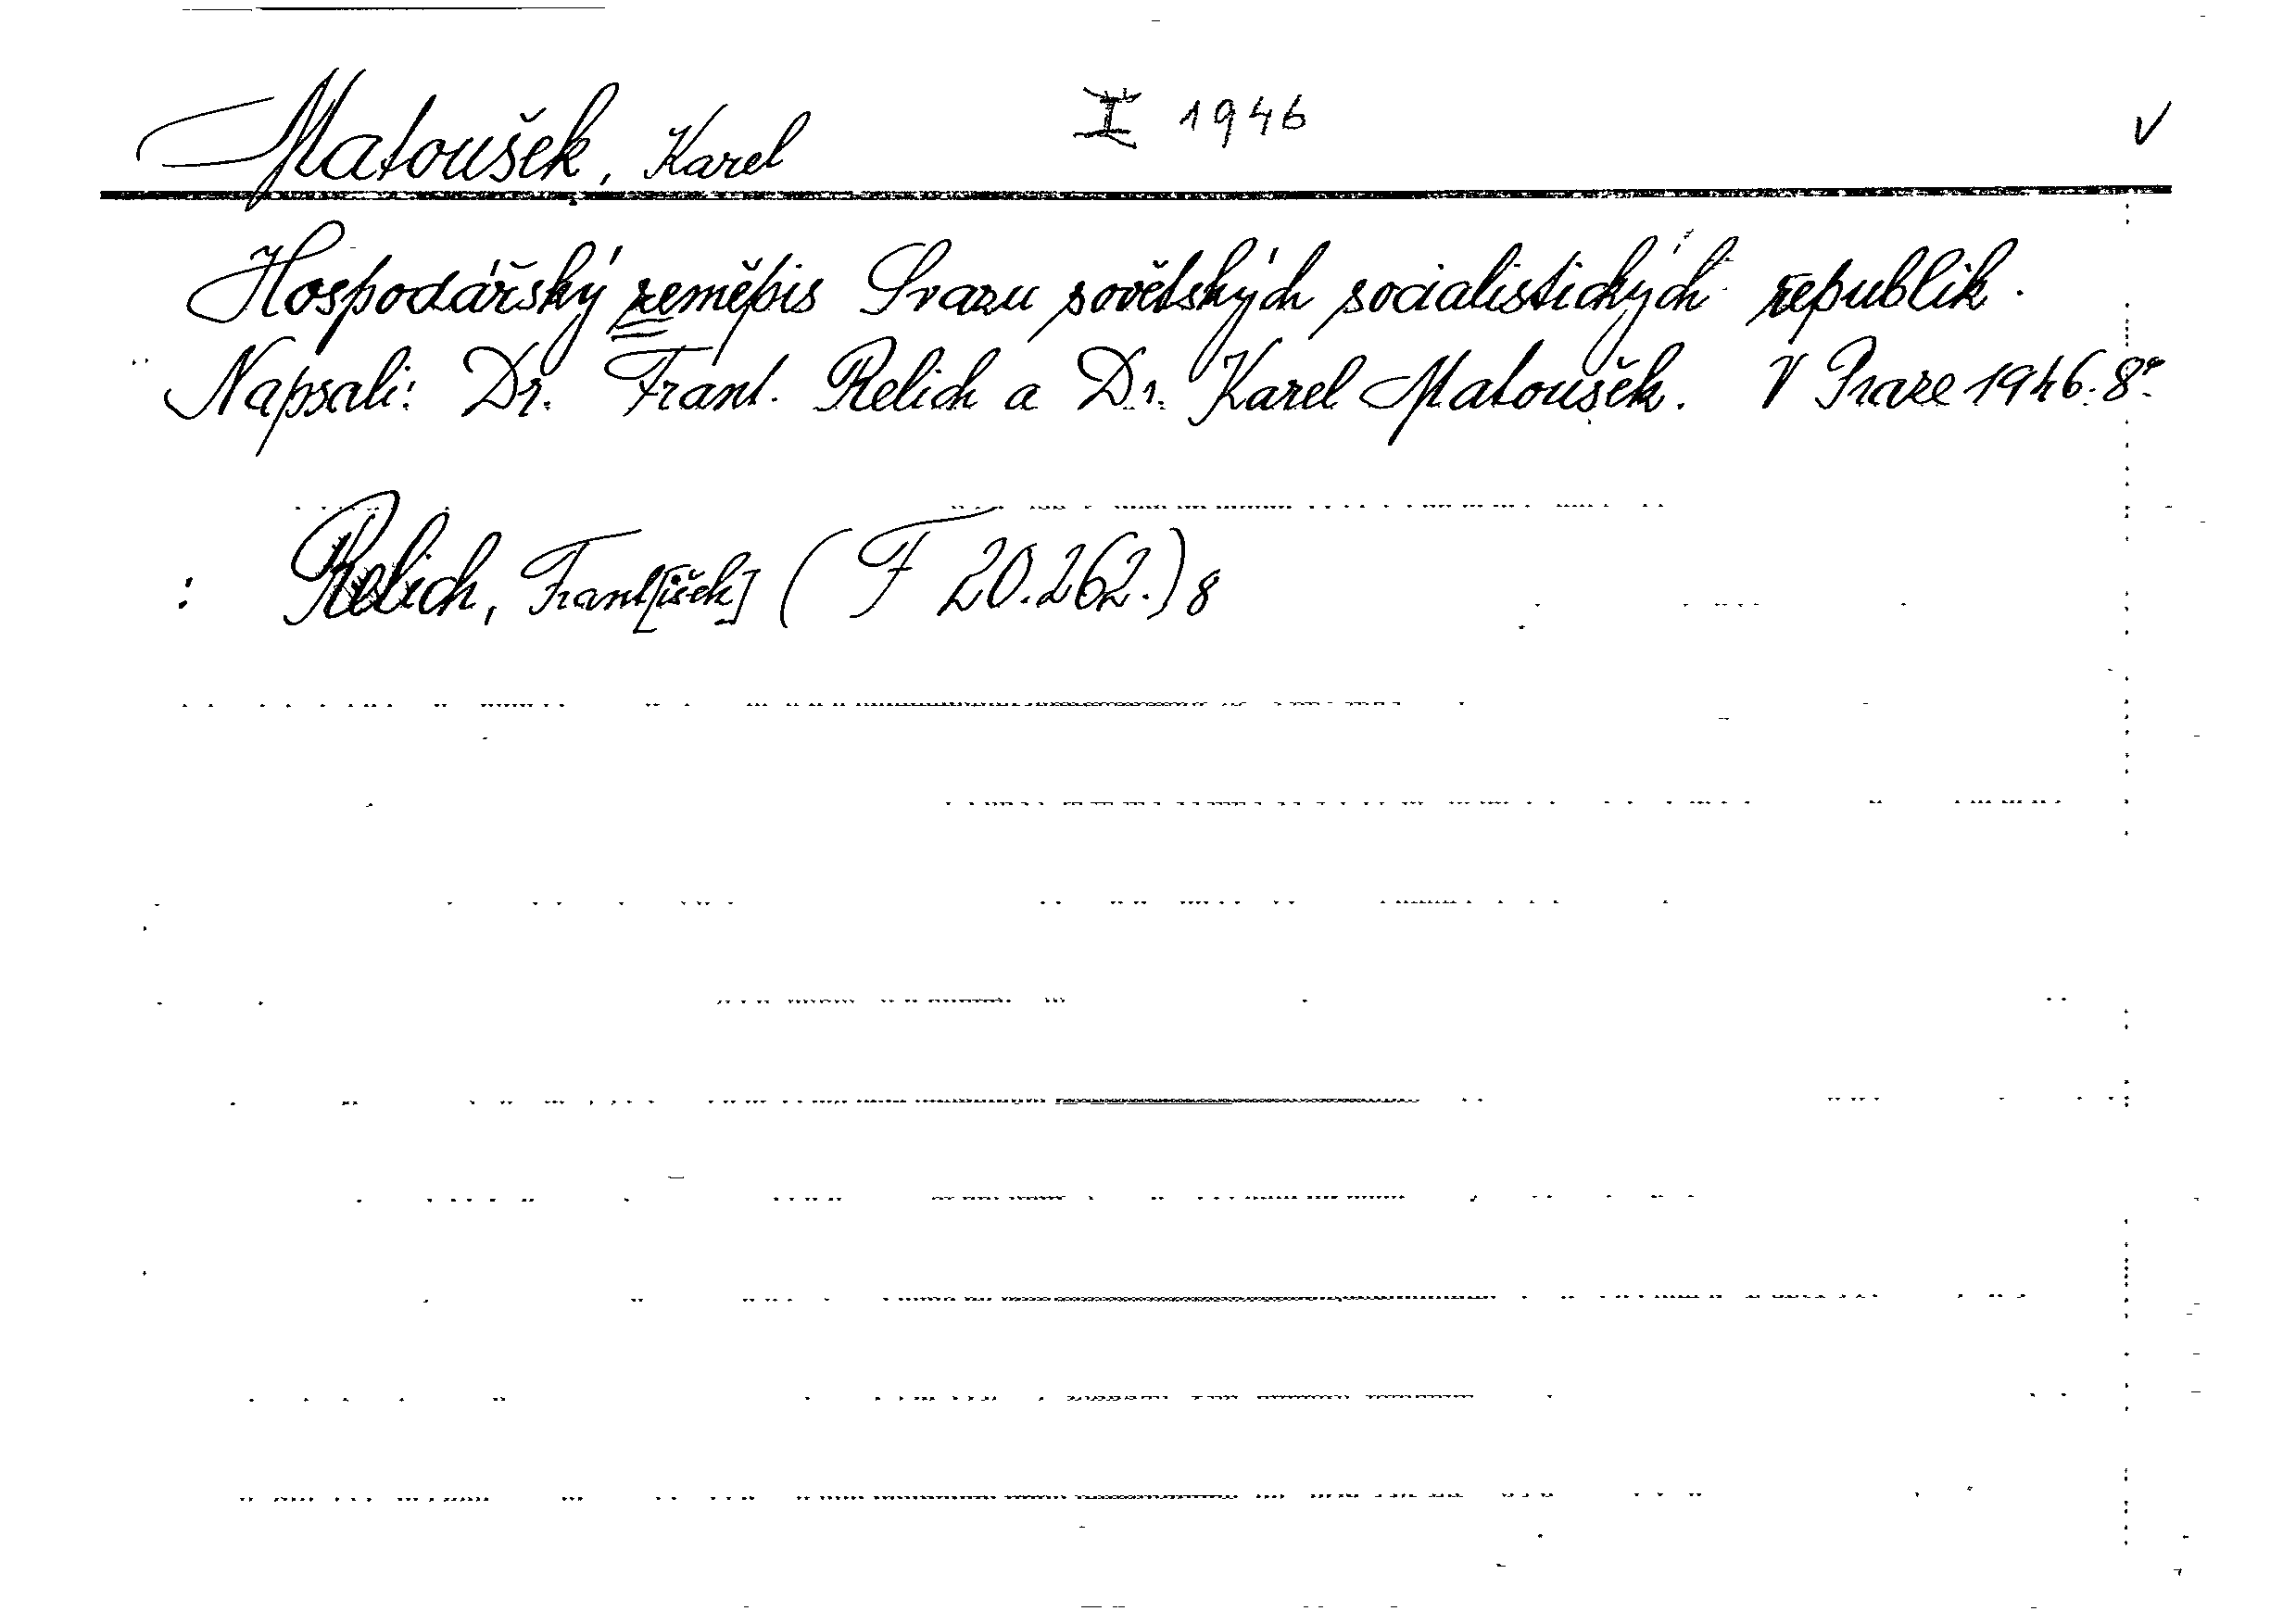 Matoušek, Karel I 1946 V
Hospodářský zeměpis Svazu sovětských socialistických republik.
Napsali: Dr. Frant. Relich a Dr. Karel Matoušek. V Praze 1946. 8°.
: Relich, Frant[išek] ( F 20.262.) 8